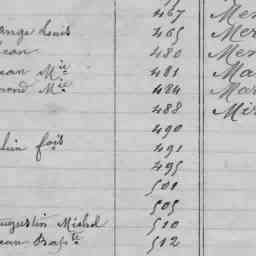 467 Me
ange Louis 465 Mer
ean 480 Mer
ean Mie 481 Ma
mond Mie 484 Mar
488 Mir
490
lin fois 491
495
501
505
ugustin Michel 510
ean Bapte 512